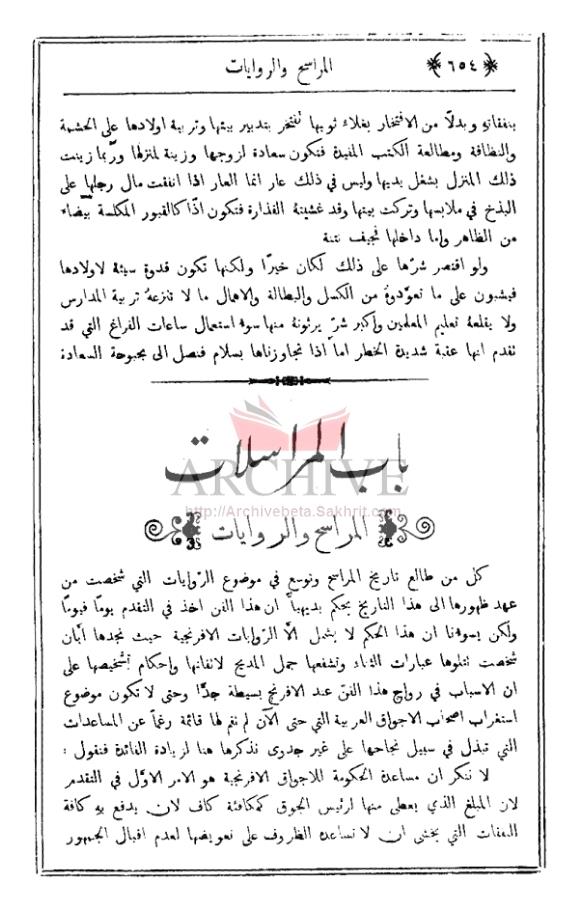 ٦٥٤
المراسح والروايات
بنفقاتهِ وبدلًا من الافتخار بغلاء ثوبها تفتخر بتدبير بيتها وتربية اولادها على الحشمة
والنظافة ومطالعة الكتب المفيدة فتكون سعادة لزوجها وزينة لمنزلها وربما زينت
ذلك المنزل بشغل يديها وليس في ذلك عار انما العار اذا انفقت مال رجلها على
البذخ في ملابسها وتركت بيتها وقد غشيتهُ القذارة فتكون اذًا كالقبور المكلسة بيضاء
من الظاهر واما داخلها فجيف نتنة
ولو اقتصر شرّها على ذلك لكان خيرًا ولكنها تكون قدوة سيئة لاولادها
فيشبون على ما تعوّدوهُ من الكسل والبطالة والاهمال ما لا تنزعهُ تربية المدارس
ولا يقلعهُ تعليم المعلمين وأكبر شرّ يرثونهُ منها سوء استعمال ساعات الفراغ التي قد
تقدم انها عقبة شديدة الخطر اما اذا تجاوزناها بسلام فنصل الى بحبوحة السعادة
باب المراسلات
ARCHIVE
http://Archivebeta.Sakhrit.com
المراسح والروايات
كل من طالع تاريخ المراسح وتوسع في موضوع الرّوايات التي شخصت من
عهد ظهورها الى هذا التاريخ يحكم بديهيًا ان هذا الفن اخذ في التقدم يومًا فيومًا
ولكن يسوءنا ان هذا الحكم لا يشمل الّا الرّوايات الافرنجية حيث نجدها أبان
شخصت تتلوها عبارات الثناء وتشفعها جمل المديح لاتقانها وإحكام تشخيصها على
ان الاسباب في رواج هذا الفنّ عند الافرنج بسيطة جدًّا وحتى لا تكون موضوع
استغراب اصحاب الاجواق العربية التي حتى الآن لم تقم لها قائمة رغمًا عن المساعدات
التي تبذل في سبيل نجاحها على غير جدوى نذكرها هنا لزيادة الفائدة فنقول :
لا ننكر ان مساعدة الحكومة للاجواق الافرنجية هو الامر الاوّل في التقدم
لان المبلغ الذي يعطى منها لرئيس الجوق كمكافئة كاف لان يدفع بهِ كافة
النفقات التي يخشى ان لا تساعده الظروف على تعويضها لعدم اقبال الجمهور